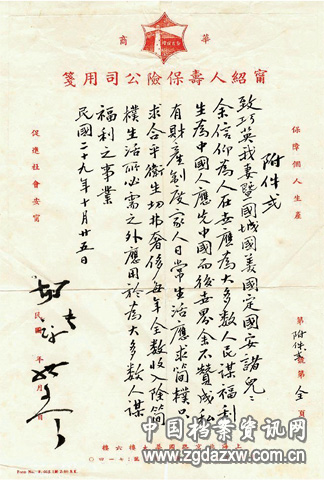 華商
甯紹人壽保險公司用箋
保障個人生產
附件弍
致巧英我妻暨國城國美國定國安諸兒：
余信仰為人在世應為大多數人民謀福利
生為中國人應先中國而後世界余不贊成私
有財產制度家人日常生活應求簡樸只
求合乎衛生切弗奢侈每年全數收入除簡
樸生活所必需之外應用於為大多數人謀
福利之事業
民國二十九年十月廿五日
促進社會安甯
第附件弍號第全頁
民國 年 月 日
中国档案资讯网
www.zgdazxw.com.cn